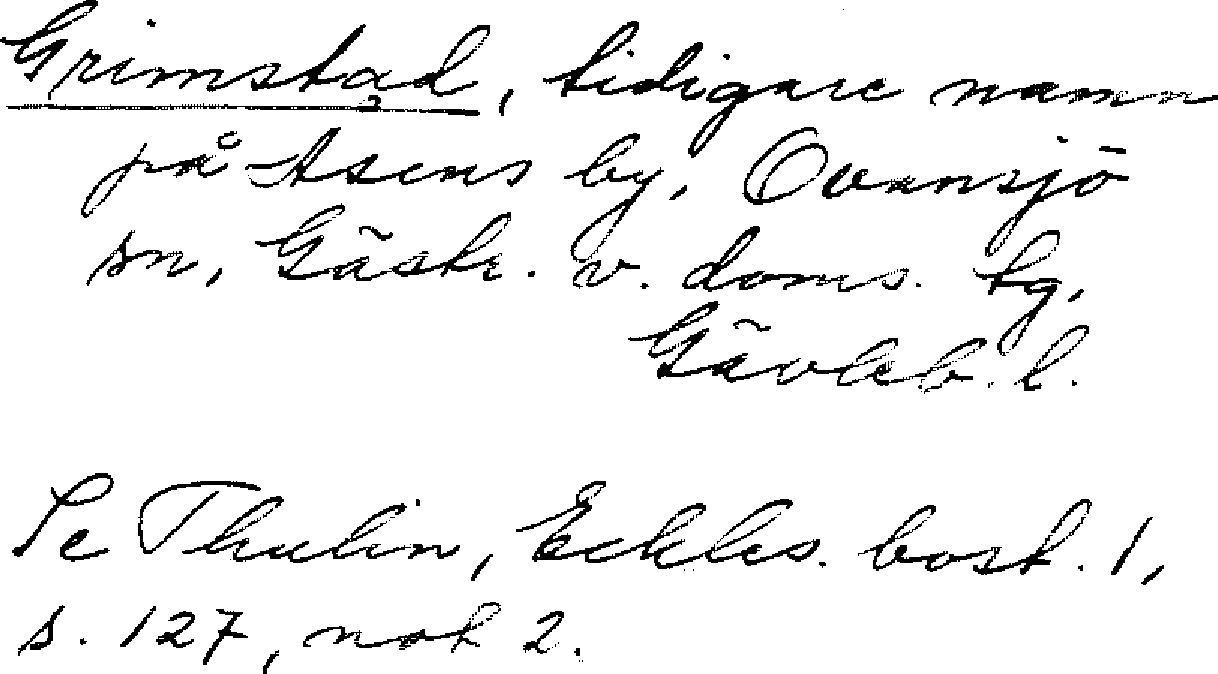 Grimstad, tidigare namn
på Åsens by, Ovansjö
sn, Gästr. v. doms. tg,
Gävleb. l.
Se Thulin, Eckles. bost. 1,
s. 127, not 2.